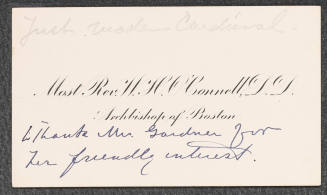 Just made Cardinal.
Most Rev. W. H. O'Connell, D. D.
Archbishop of Boston
Thanks Mrs. Gardner for
her friendly interest.